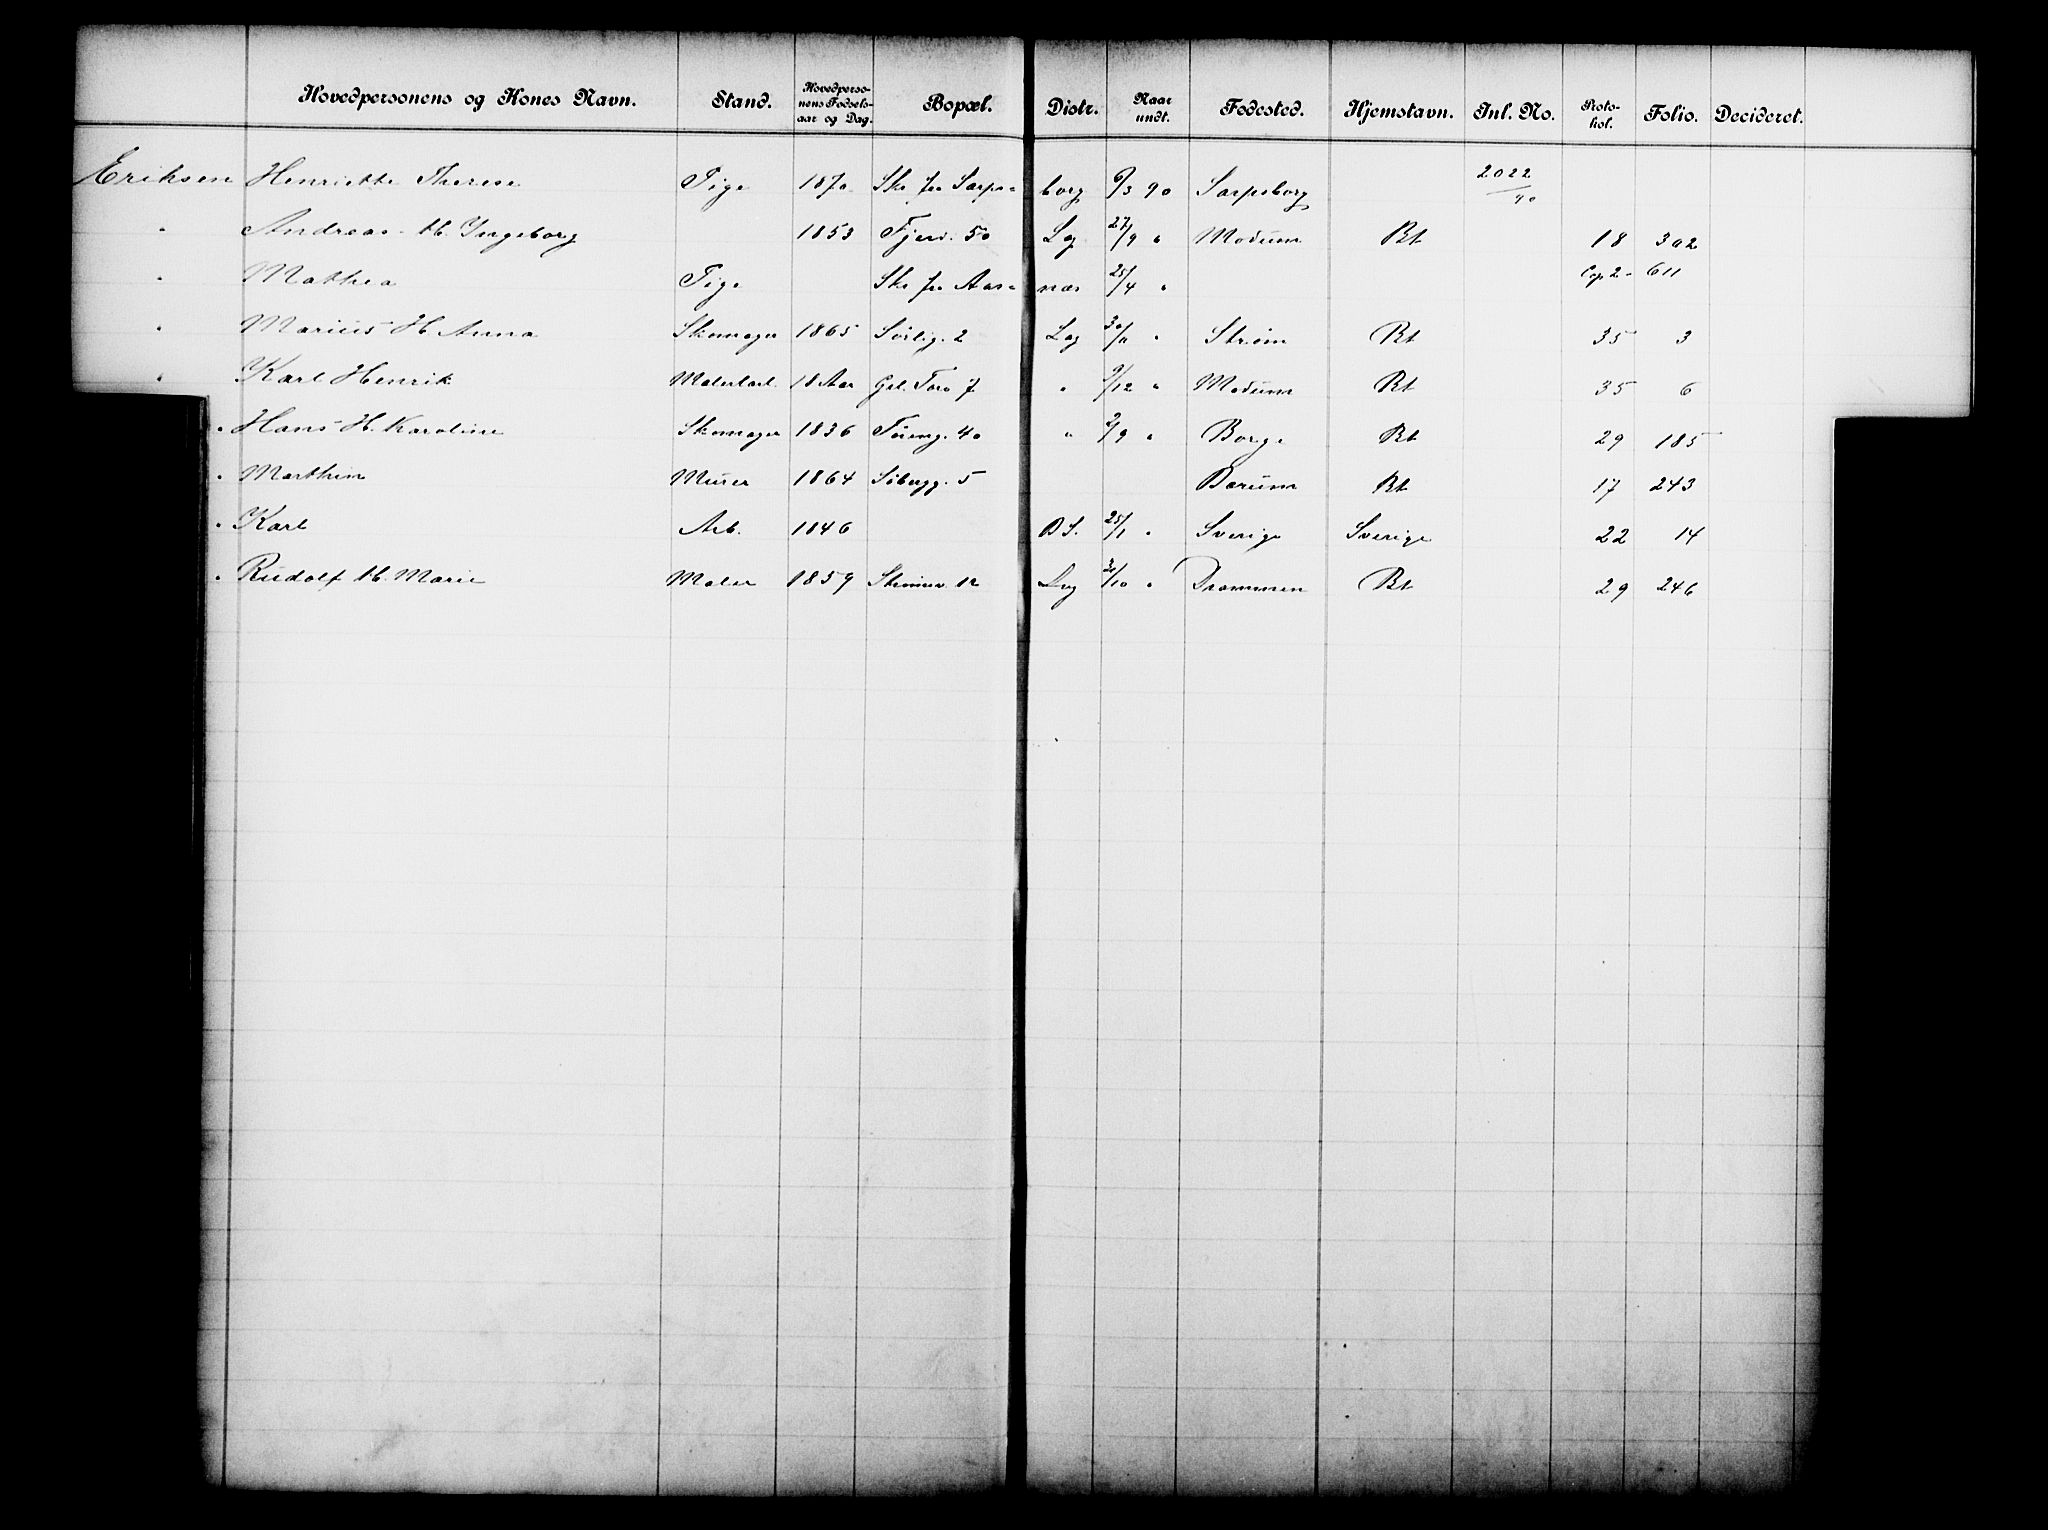 Hovedpersonens og Kones Navn. Stand. Hovedpersonens Fødselsaar og Dag. Bopæl. Distr. Naar undt. Fødested. Hjemstavn. Inl. No. Protokol. Folio. Decideret.
Eriksen Henriette Therese Pige 1870 Skr fra Sarps= borg 6/3 90 Sarpsborg 2022/90
" Andreas H. Ingeborg 1853 Fjerd. 50 Lag 27/9 " Modum Bt 18 302
" Mathea Pige Skr fra Aas= nær 25/4 " Cop 2 - 611
" Marius H Anna Skomager 1865 Sörlig. 2 Lag " Strøm Bt 35 3
" Karl Henrik Malerlærl 18 Aar Grl. Torv 7 " 9/12 " Modum Bt 35 6
" Hans H. Karoline Skomager 1836 Töieng. 40 " 2/9 " Borge Bt 29 185
" Marthin Murer 1864 5 Bærum Bt 17 243
" Karl Arb. 1846 B S. 25/1 " Sverige Sverige 22 14
" Rudolf H. Marie Maler 1859 12 Lag /10 " Drammen Bt 29 246